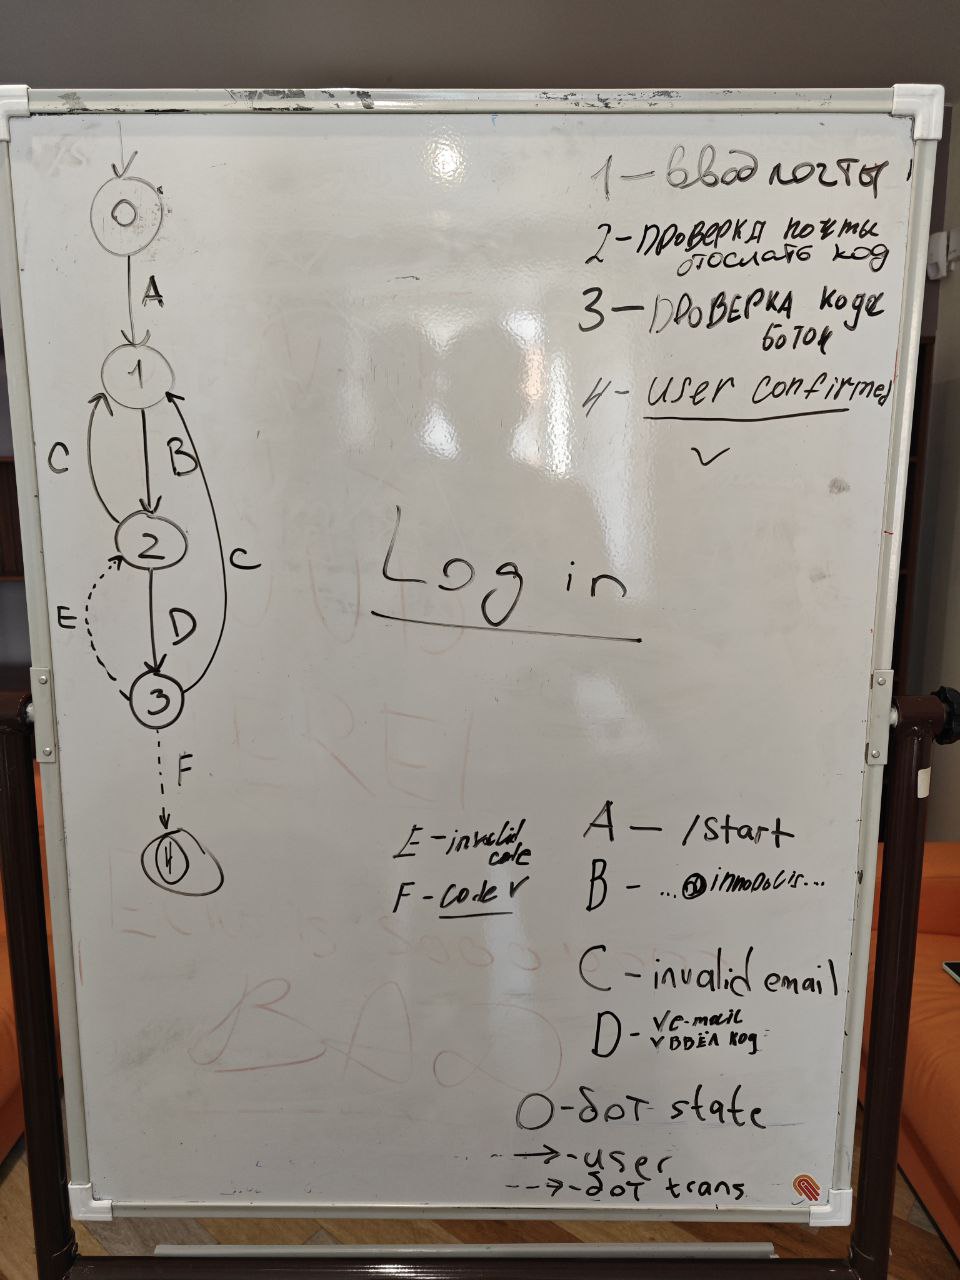 0
A
1
C
B
2
C
E
D
3
F
4
1 – ввод почты
2 – проверка почты
отослать код
3 – проверка кода
ботом
4 – user confirmed
✓
Log in
E – invalid
code
F – code ✓
A – /start
B – ...@innopolis...
C – invalid email
D – ✓ e-mail
✓ ввёл код
O – бот state
→ – user
--→ – бот trans